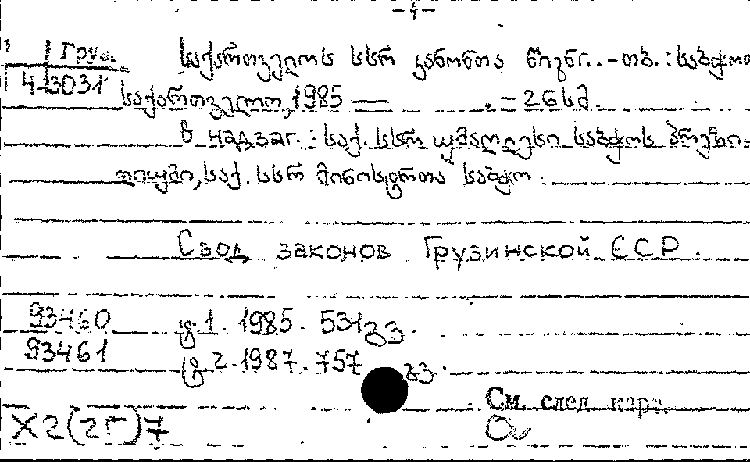 -4-
Груз. საქართველოს სსრ კანონთა წიგნი. -თბ.: საბჭოთა
4-3031 საქართველო, 1985 — . - 26 სმ.
В надзаг.: საქ. სსრ უმაღლესი საბჭოს პრეზი-
დიუმი, საქ. სსრ მინისტრთა საბჭო.
Свод законов Грузинской ССР.
93460 ტ.1. 1985. 531 გვ.
93461 ტ.2. 1987. 757 გვ.
См. след. карт.
Х2(2Г)7